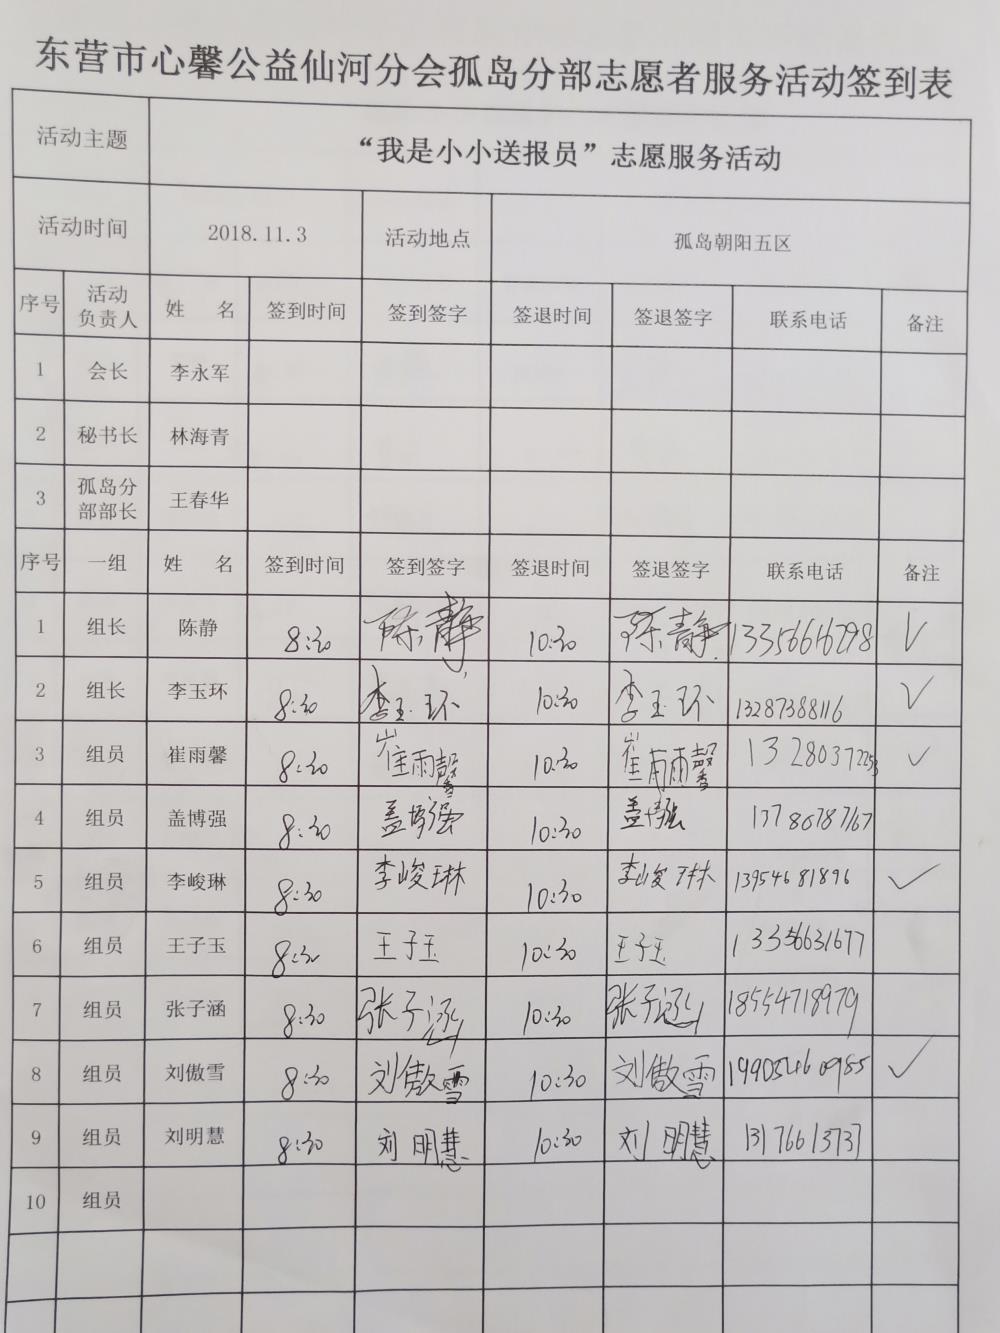 东营市心馨公益仙河分会孤岛分部志愿者服务活动签到表
活动主题 “我是小小送报员”志愿服务活动
活动时间 2018.11.3 活动地点 孤岛朝阳五区
序号 活动负责人 姓 名 签到时间 签到签字 签退时间 签退签字 联系电话 备注
1 会长 李永军
2 秘书长 林海青
3 孤岛分部部长 王春华
序号 一组 姓 名 签到时间 签到签字 签退时间 签退签字 联系电话 备注
1 组长 陈静 8:30 陈静 10:30 陈静 13356616298 √
2 组长 李玉环 8:30 李玉环 10:30 李玉环 13287388116 √
3 组员 崔雨馨 8:30 崔雨馨 10:30 崔雨馨 √
4 组员 盖博强 8:30 盖博强 10:30 盖博强
5 组员 李峻琳 8:30 李峻琳 10:30 李峻琳 13954681896 √
6 组员 王子玉 8:30 王子玉 10:30 王子玉 13356631677
7 组员 张子涵 8:30 张子涵 10:30 张子涵 18554718979
8 组员 刘傲雪 8:30 刘傲雪 10:30 刘傲雪 √
9 组员 刘明慧 8:30 刘明慧 10:30 刘明慧 13176613737
10 组员